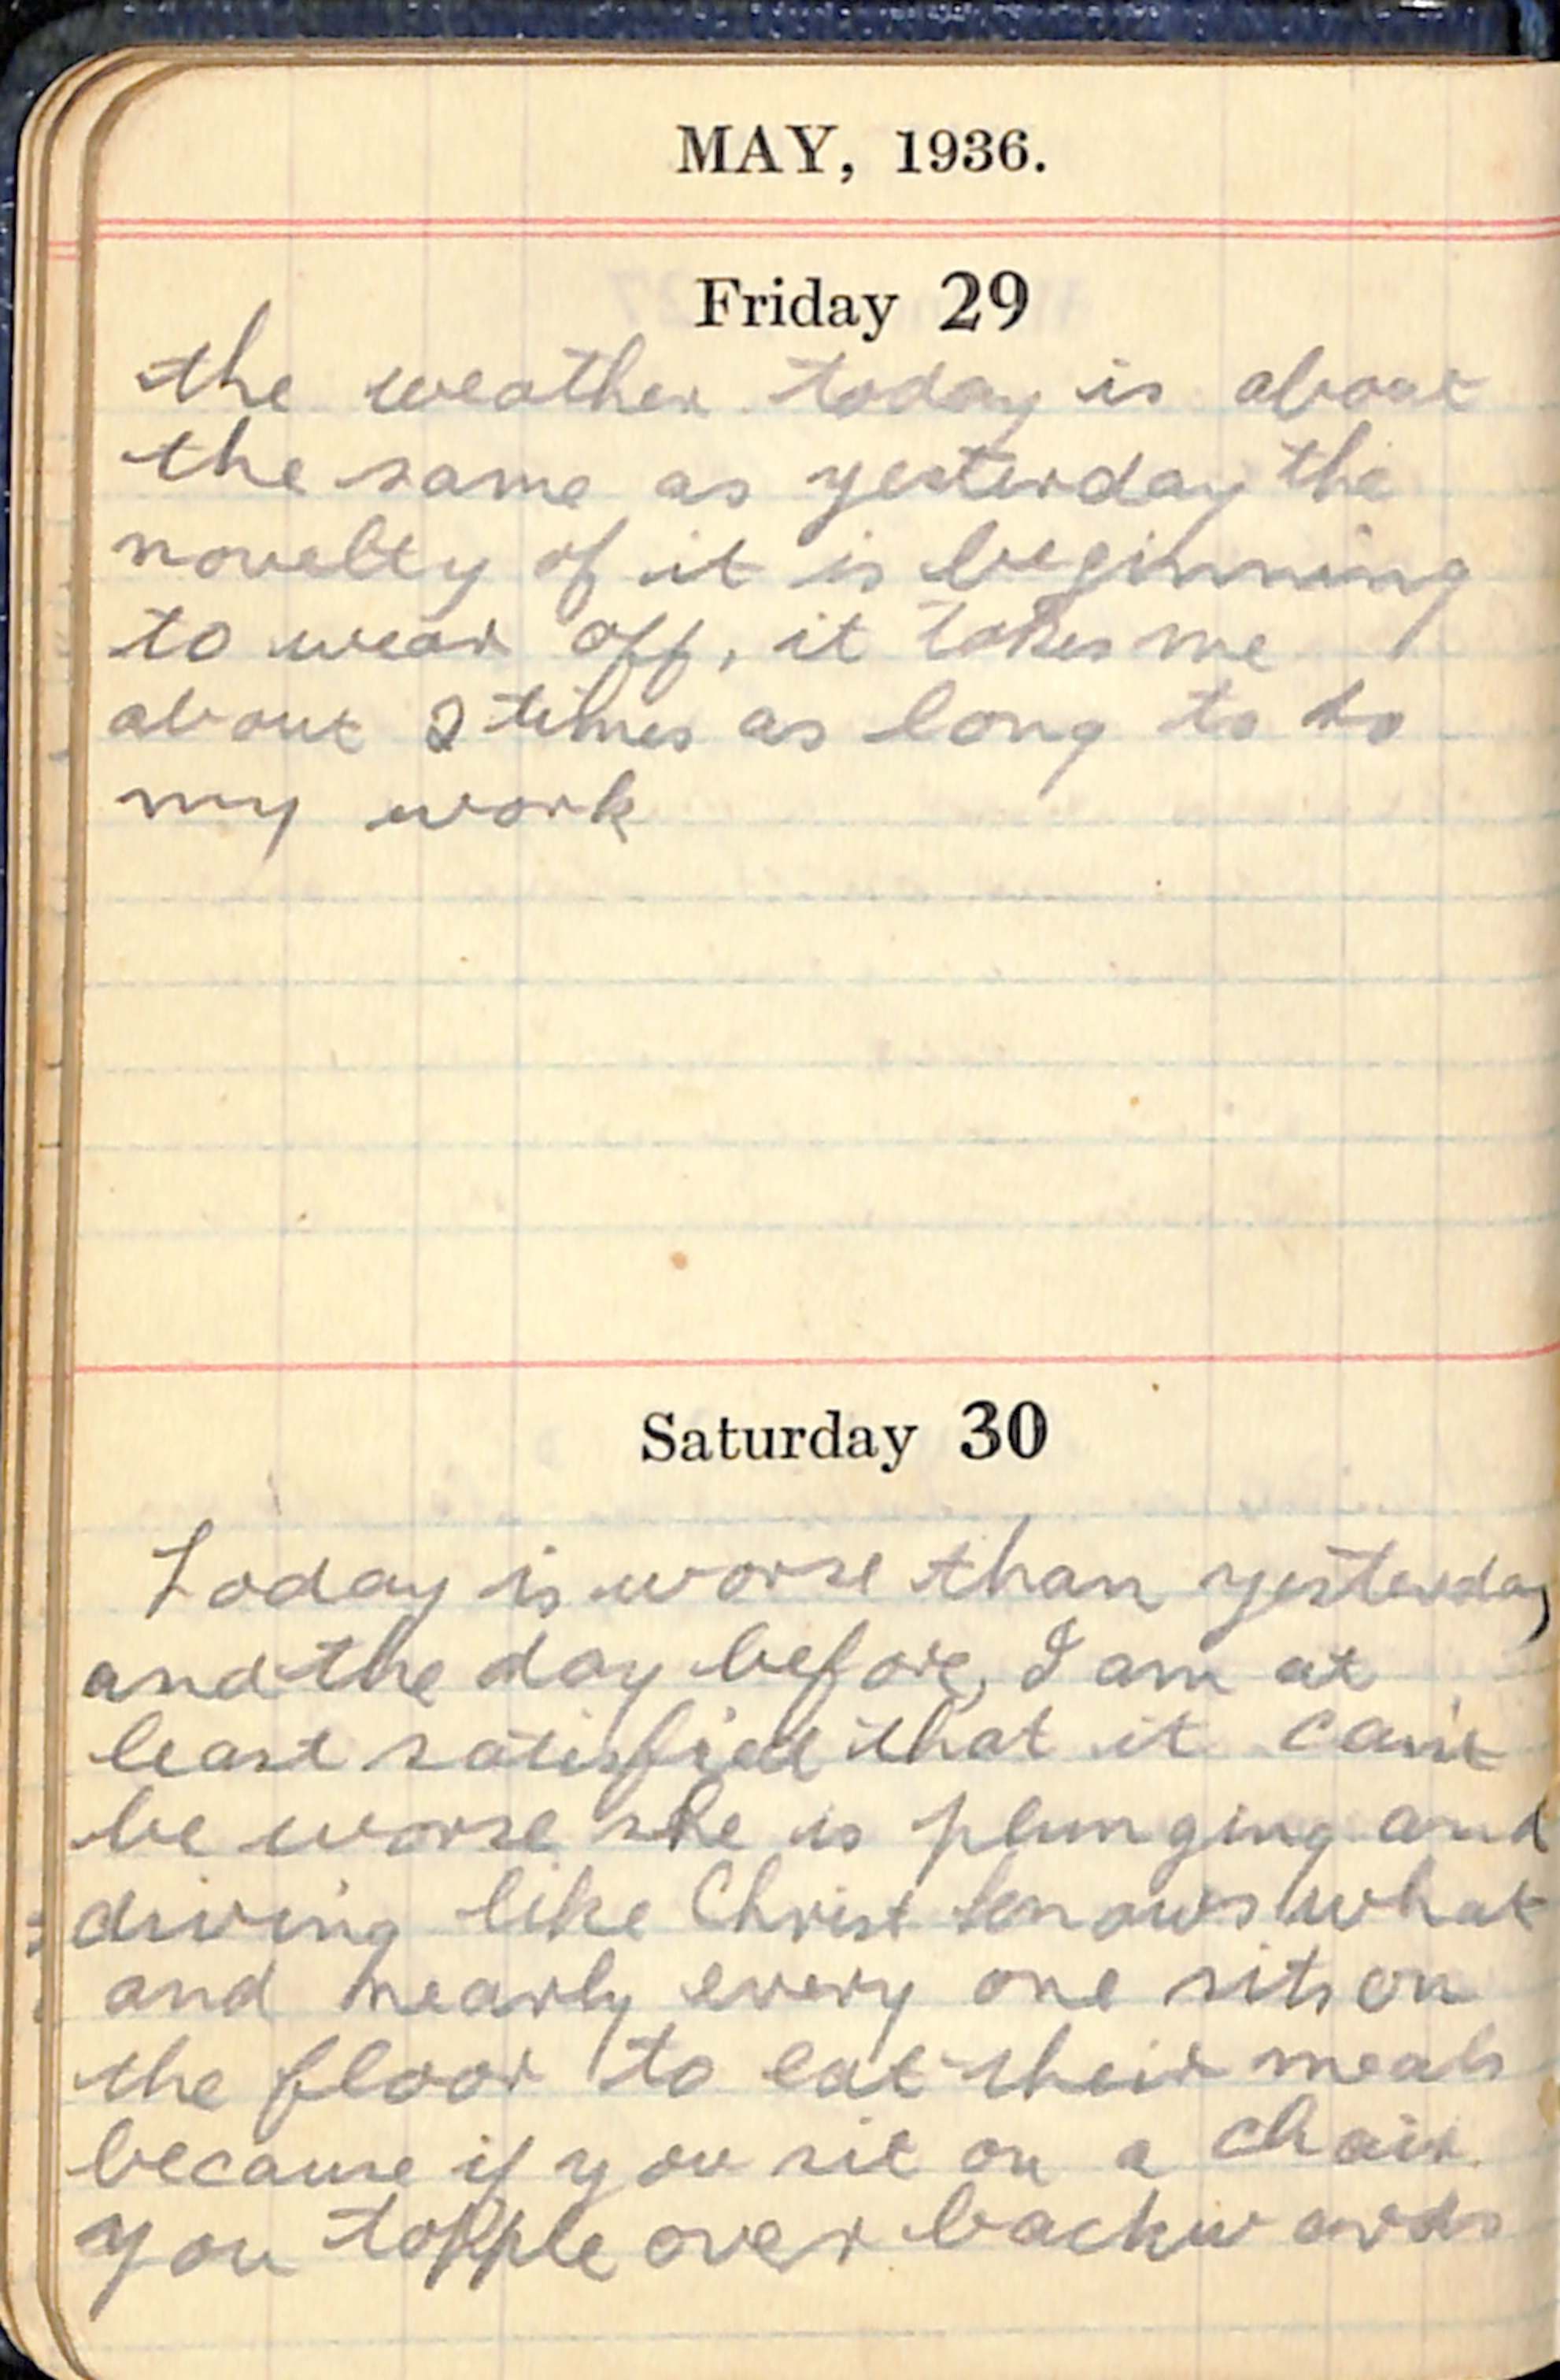 MAY, 1936.
Friday 29
the weather today is about
the same as yesterday the
novelty of it is beginning
to wear off, it takes me
about 2 times as long to do
my work
Saturday 30
Today is worse than yesterday
and the day before, I am at
least satisfied that it can't
be worse she is plunging and
diving like Christ knows what
and nearly every one sits on
the floor to eat their meals
because if you sit on a chair
you topple over backwards